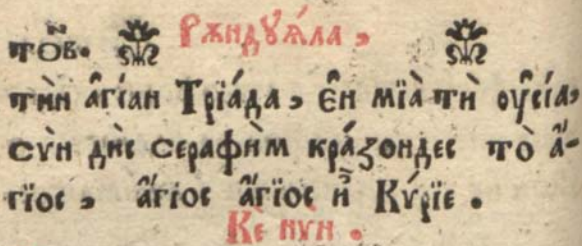 тѡ҃в. Рѫндꙋѧ́ла,
тин а҆гі́ан Трїа́да, є҆н мїа̀ ти̑ ѹ҆сі́а,
сѷн дис серафи̑м кра́зондес то̀ а҆́-
гїос, а҆́гїос а҆́гїос и҆̃ Кѵ́рїе.
Кѐ нѷн.